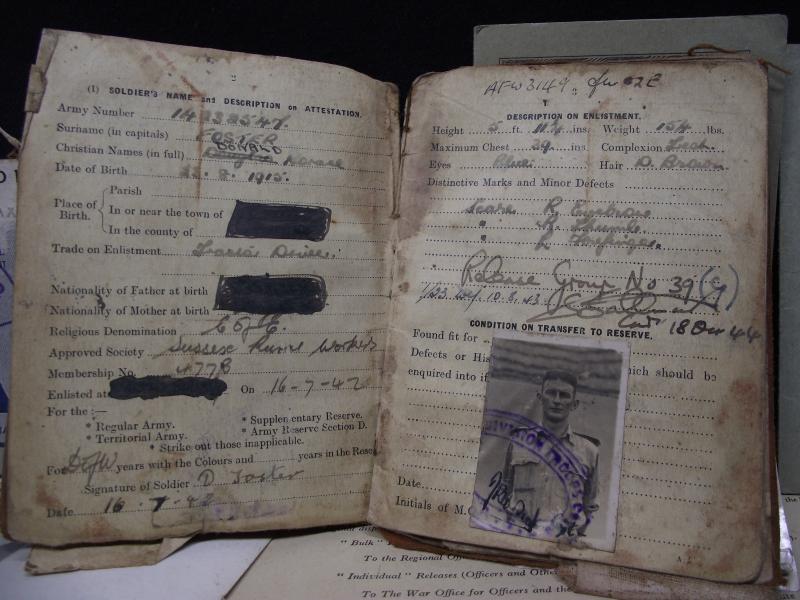 2
(1) SOLDIER'S NAME and DESCRIPTION on ATTESTATION.
Army Number
Surname (in capitals) FOSTER
DONALD
Christian Names (in full) Douglas Horace
Date of Birth 8. 1915.
Parish
Place of Birth.
In or near the town of
In the county of
Trade on Enlistment Driver.
Nationality of Father at birth
Nationality of Mother at birth
Religious Denomination C of E.
Approved Society Sussex Rural Workers
Membership No. 4778
Enlisted at On 16-7-42
For the :—
* Regular Army. * Supplementary Reserve.
* Territorial Army. * Army Reserve Section D.
* Strike out those inapplicable.
For D of W years with the Colours and years in the Rese
Signature of Soldier D. Foster
Date 16.7.42
AFW3149
DESCRIPTION ON ENLISTMENT.
Height 5 ft. ins. Weight 154 lbs.
Maximum Chest 39 ins. Complexion
Eyes Blue. Hair D. Brown
Distinctive Marks and Minor Defects
Scars R. Eyebrow
" R. Thumb
" L. Forefinger.
Release Group No 39 (G)
10.8.43
18 Dec 44
CONDITION ON TRANSFER TO RESERVE.
Found fit for
Defects or His which should be
enquired into if
DIVISION
Date
Initials of M.
"Bulk"
To the Regional Of
"Individual" Releases (Officers and Othe
To The War Office for Officers and the